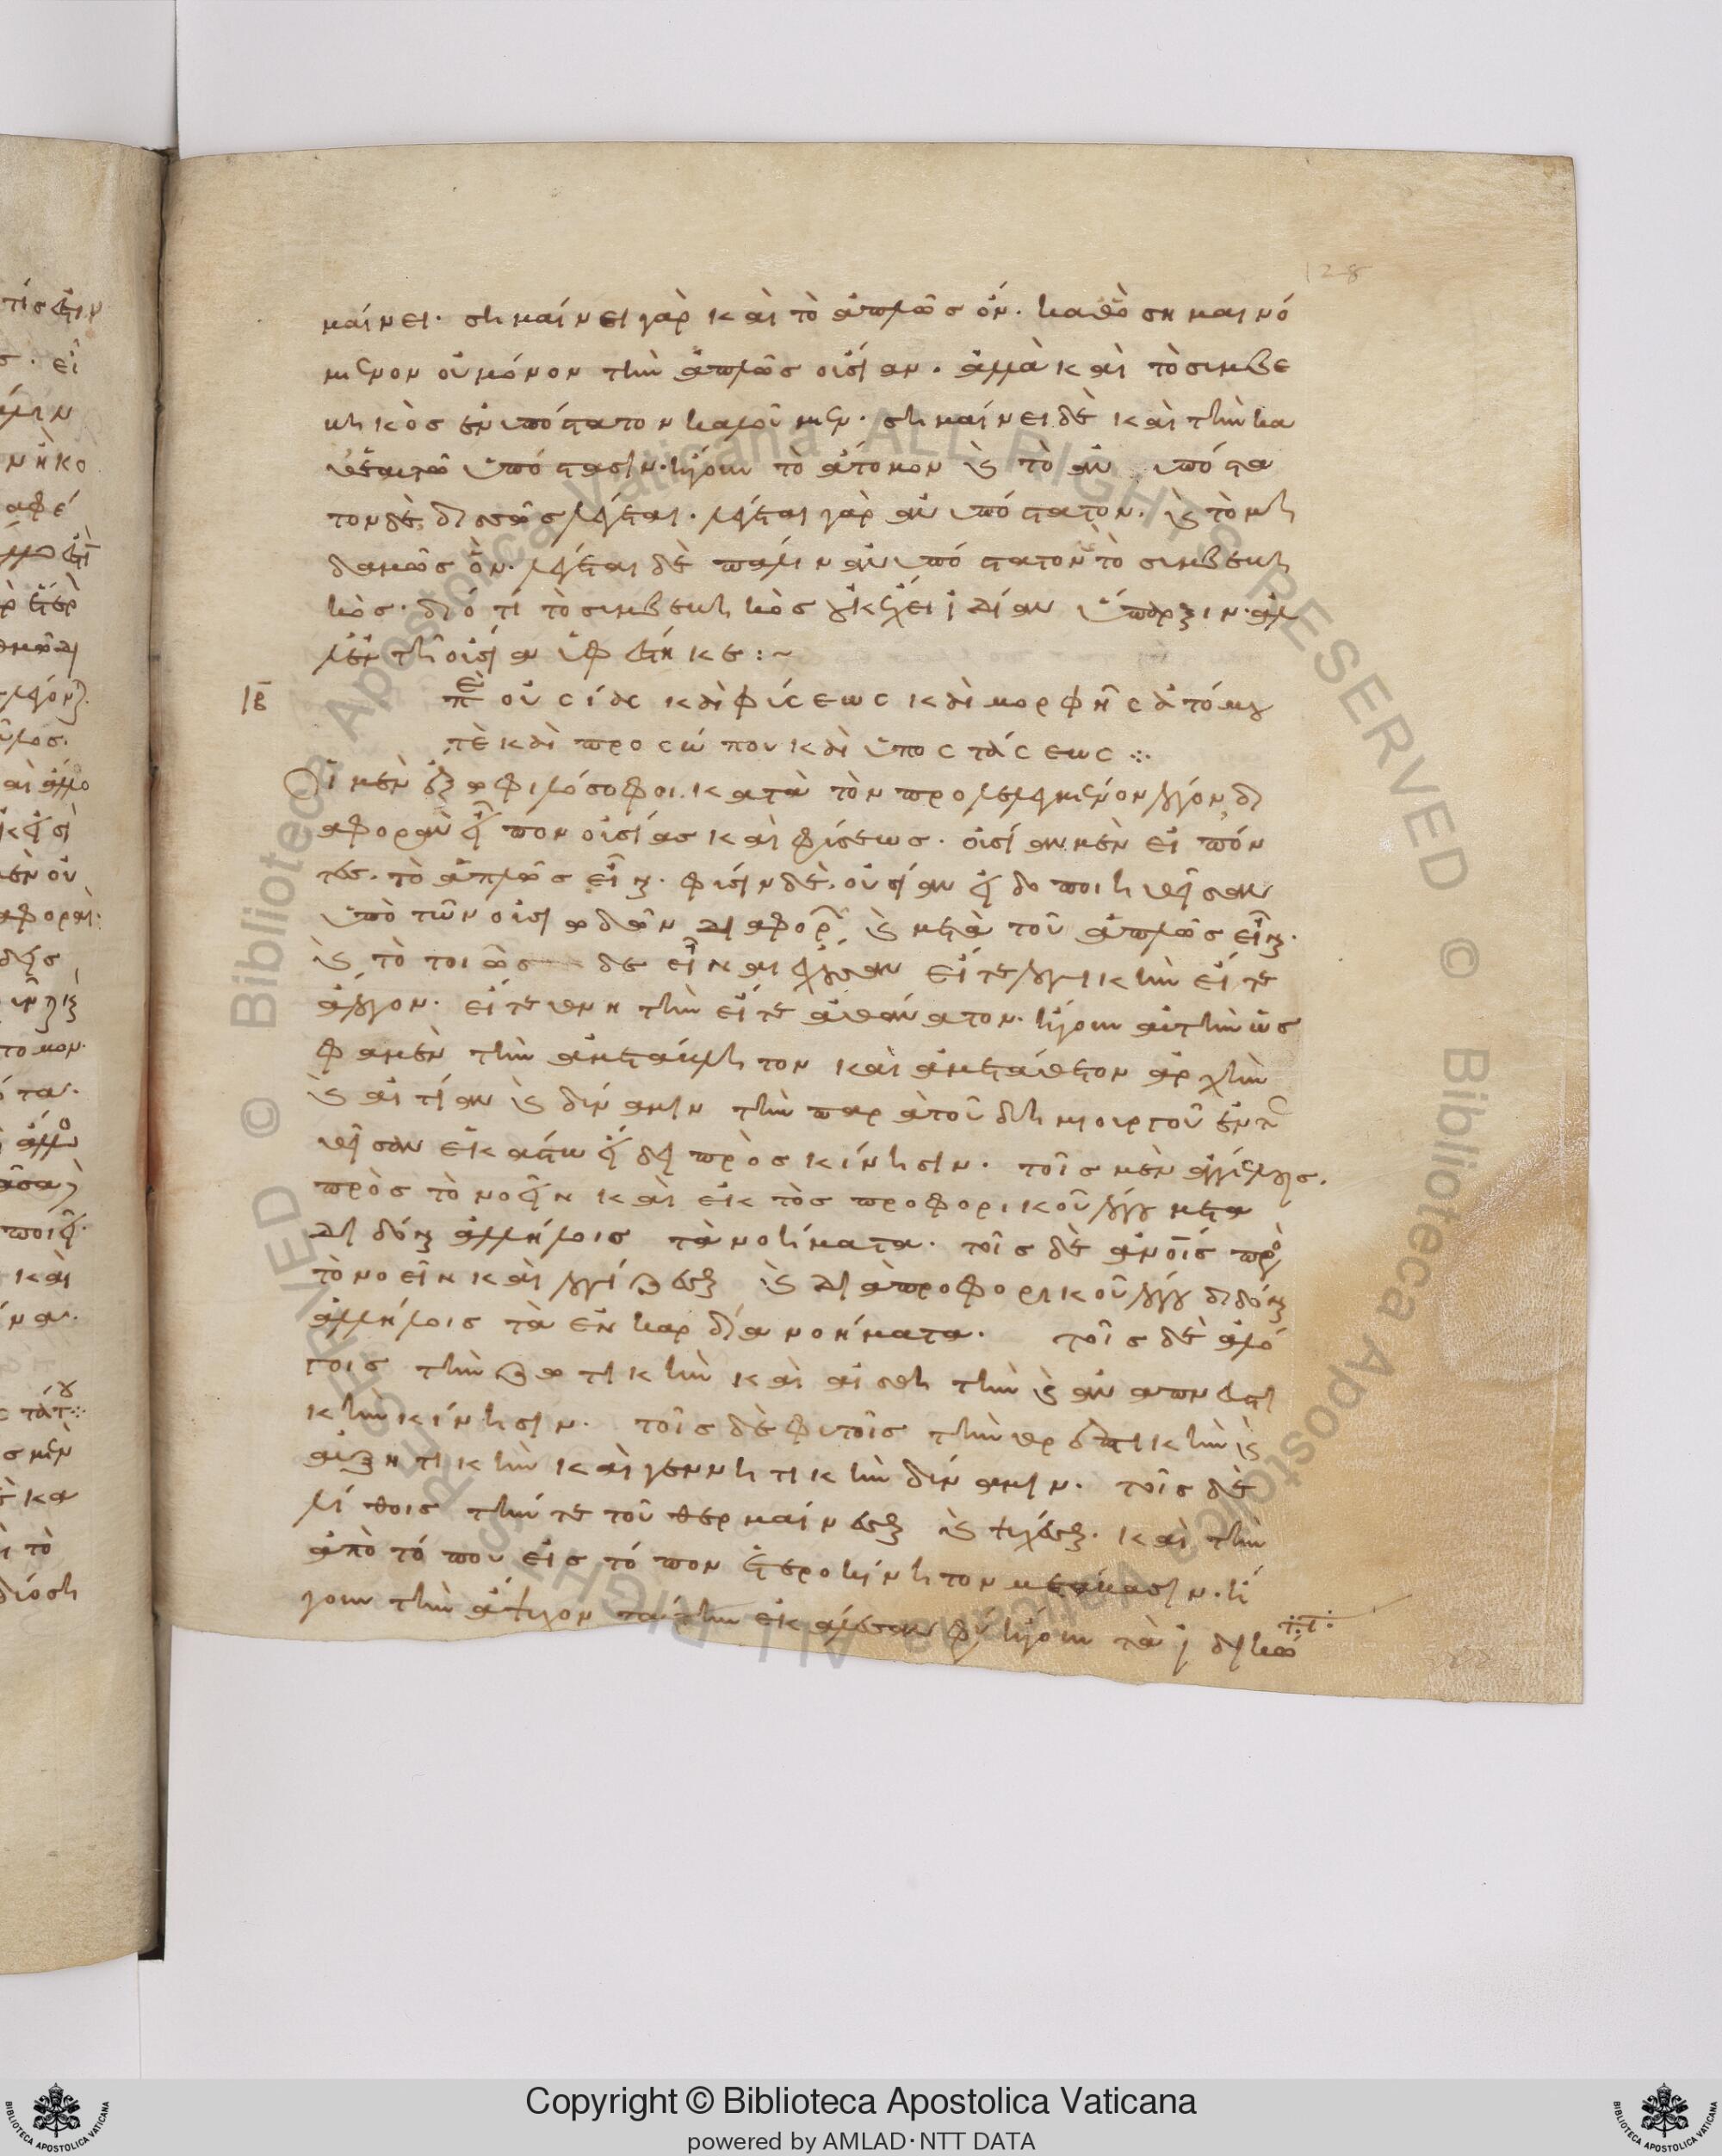 128
μαίνει· σημαίνει γὰρ καὶ τὸ ἁπλῶς ὄν. καθὸ σημαινό
μενον οὐ μόνον τὴν ἁπλῶς οὐσίαν. ἀλλὰ καὶ τὸ συμβε
βηκὸς ἐνυπόστατον καλοῦμεν. σημαίνει δὲ καὶ τὴν κα
θ' ἑαυτὸ ὑπόστασιν. ἤγουν τὸ ἄτομον κ(αὶ) τὸ ἀνυπόστα
τον δὲ, δισσῶς λέγεται. λέγεται γὰρ ἀνυπόστατον. κ(αὶ) τὸ μη
δαμῶς ὄν. λέγεται δὲ πάλιν ἀνυπόστατον τὸ συμβεβη
κός. διότι τὸ συμβεβηκὸς οὐκ ἔχει ἰδίαν ὕπαρξιν. ἀλ
λ' ἐν τῇ οὐσίᾳ ὑφέστηκε :~
ιβ
πε οὐσίας καὶ φύσεως καὶ μορφῆς ἀτόμου
τὲ καὶ προσώπου καὶ ὑποστάσεως
Οἱ μὲν ἔξω φιλόσοφοι. κατὰ τὸν προλελεγμένον λόγον, δι
αφορὰν εἶπον οὐσίας καὶ φύσεως. οὐσίαν μὲν εἰπόν
τες. τὸ ἁπλῶς εἶναι. φύσιν δὲ, οὐσίαν εἰδοποιηθεῖσαν
ὑπὸ τῶν οὐσιωδῶν διαφορῶν κ(αὶ) μετὰ τοῦ ἁπλῶς εἶναι.
κ(αὶ) τὸ τοιῶσδε εἶναι ἔχουσαν εἴτε λογικὴν εἴτε
ἄλογον. εἴτε θνητὴν εἴτε ἀθάνατον. ἤγουν αὐτὴν ὥς
φαμεν τὴν ἀμετάβλητον καὶ ἀμετάθετον ἀρχὴν
κ(αὶ) αἰτίαν κ(αὶ) δύναμιν τὴν παρὰ τοῦ δημιουργοῦ ἐντε
θεῖσαν ἑκάστῳ εἴδει πρὸς κίνησιν. τοῖς μὲν ἀγγέλοις.
πρὸς τὸ νοεῖν καὶ ἐκτὸς προφορικοῦ λόγου μετα
διδόναι ἀλλήλοις τὰ νοήματα. τοῖς δὲ ἀνοις πρὸ
τὸ νοεῖν καὶ λογίζεσθαι κ(αὶ) διὰ προφορικοῦ λόγου διδόναι
ἀλλήλοις τὰ ἐν καρδίᾳ νοήματα. τοῖς δὲ ἀλό
γοις τὴν ζωτικὴν καὶ αἰσθητὴν κ(αὶ) ἀναπνευστι
κὴν κίνησιν. τοῖς δὲ φυτοῖς τὴν θρεπτικὴν κ(αὶ)
αὐξητικὴν καὶ γεννητικὴν δύναμιν. τοῖς δὲ
λίθοις τήν τε τοῦ θερμαίνεσθαι κ(αὶ) ψύχεσθαι. καὶ τὴν
ἀπὸ τόπου εἰς τόπον ἑτεροκίνητον μετάβασιν. ἤ
γουν τὴν ἄψυχον ταύτην ἐκάλεσαν φύ ἤγουν τὰ ἰδικώ